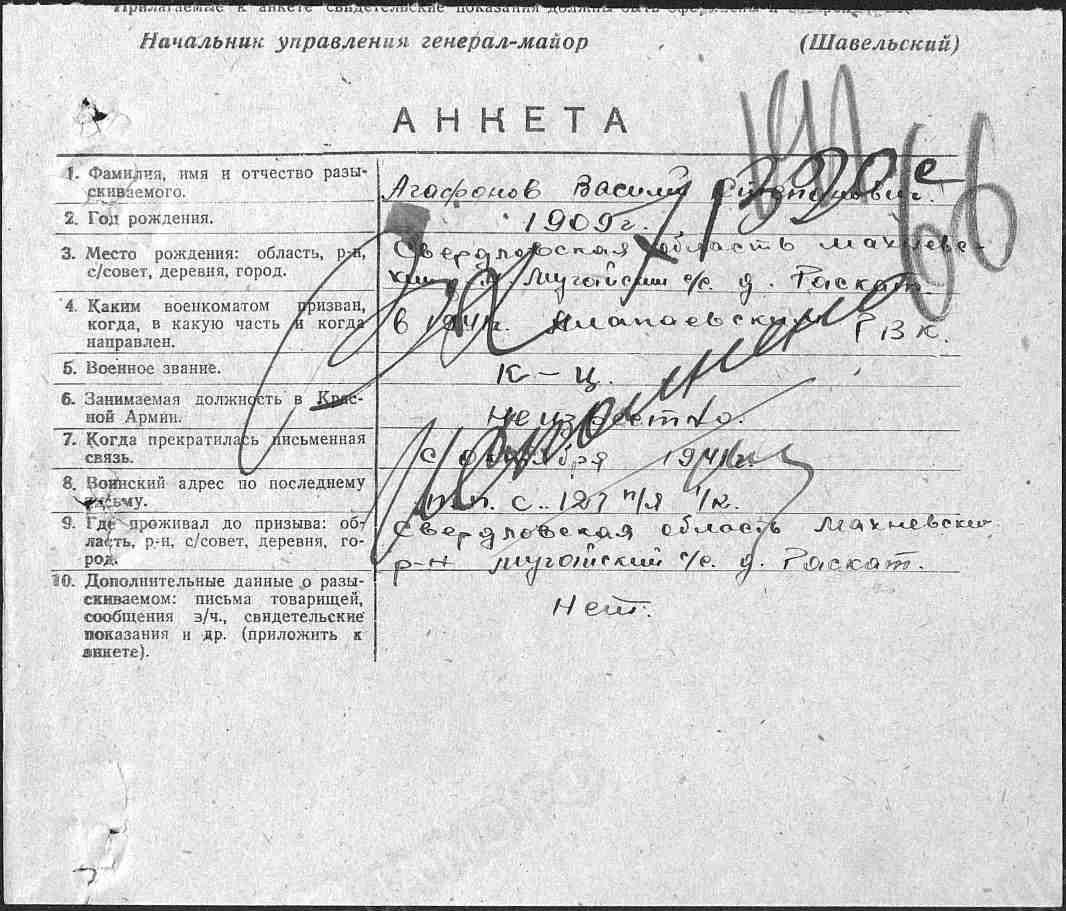 Прилагаемые к анкете свидетельские показания должны быть
Начальник управления генерал-майор (Шавельский)
АНКЕТА
1. Фамилия, имя и отчество разы-
скиваемого.
Агафонов Василий
2. Год рождения.
1909 г.
3. Место рождения: область, р-н,
с/совет, деревня, город.
Свердловская область Махневс-
кий р-н Мугайский с/с. д. Раскат.
4. Каким военкоматом призван,
когда, в какую часть и когда
направлен.
в 1941г. Алапаевским РВК.
5. Военное звание.
К-ц.
6. Занимаемая должность в Крас-
ной Армии.
Неизвестно.
7. Когда прекратилась письменная
связь.
с октября 1941г.
8. Воинский адрес по последнему
письму.
п.п.с. 127 п/я
9. Где проживал до призыва: об-
ласть, р-н, с/совет, деревня, го-
род.
Свердловская область Махневский
р-н Мугайский с/с. д. Раскат.
10. Дополнительные данные о разы-
скиваемом: письма товарищей,
сообщения з/ч., свидетельские
показания и др. (приложить к
анкете).
Нет.
66